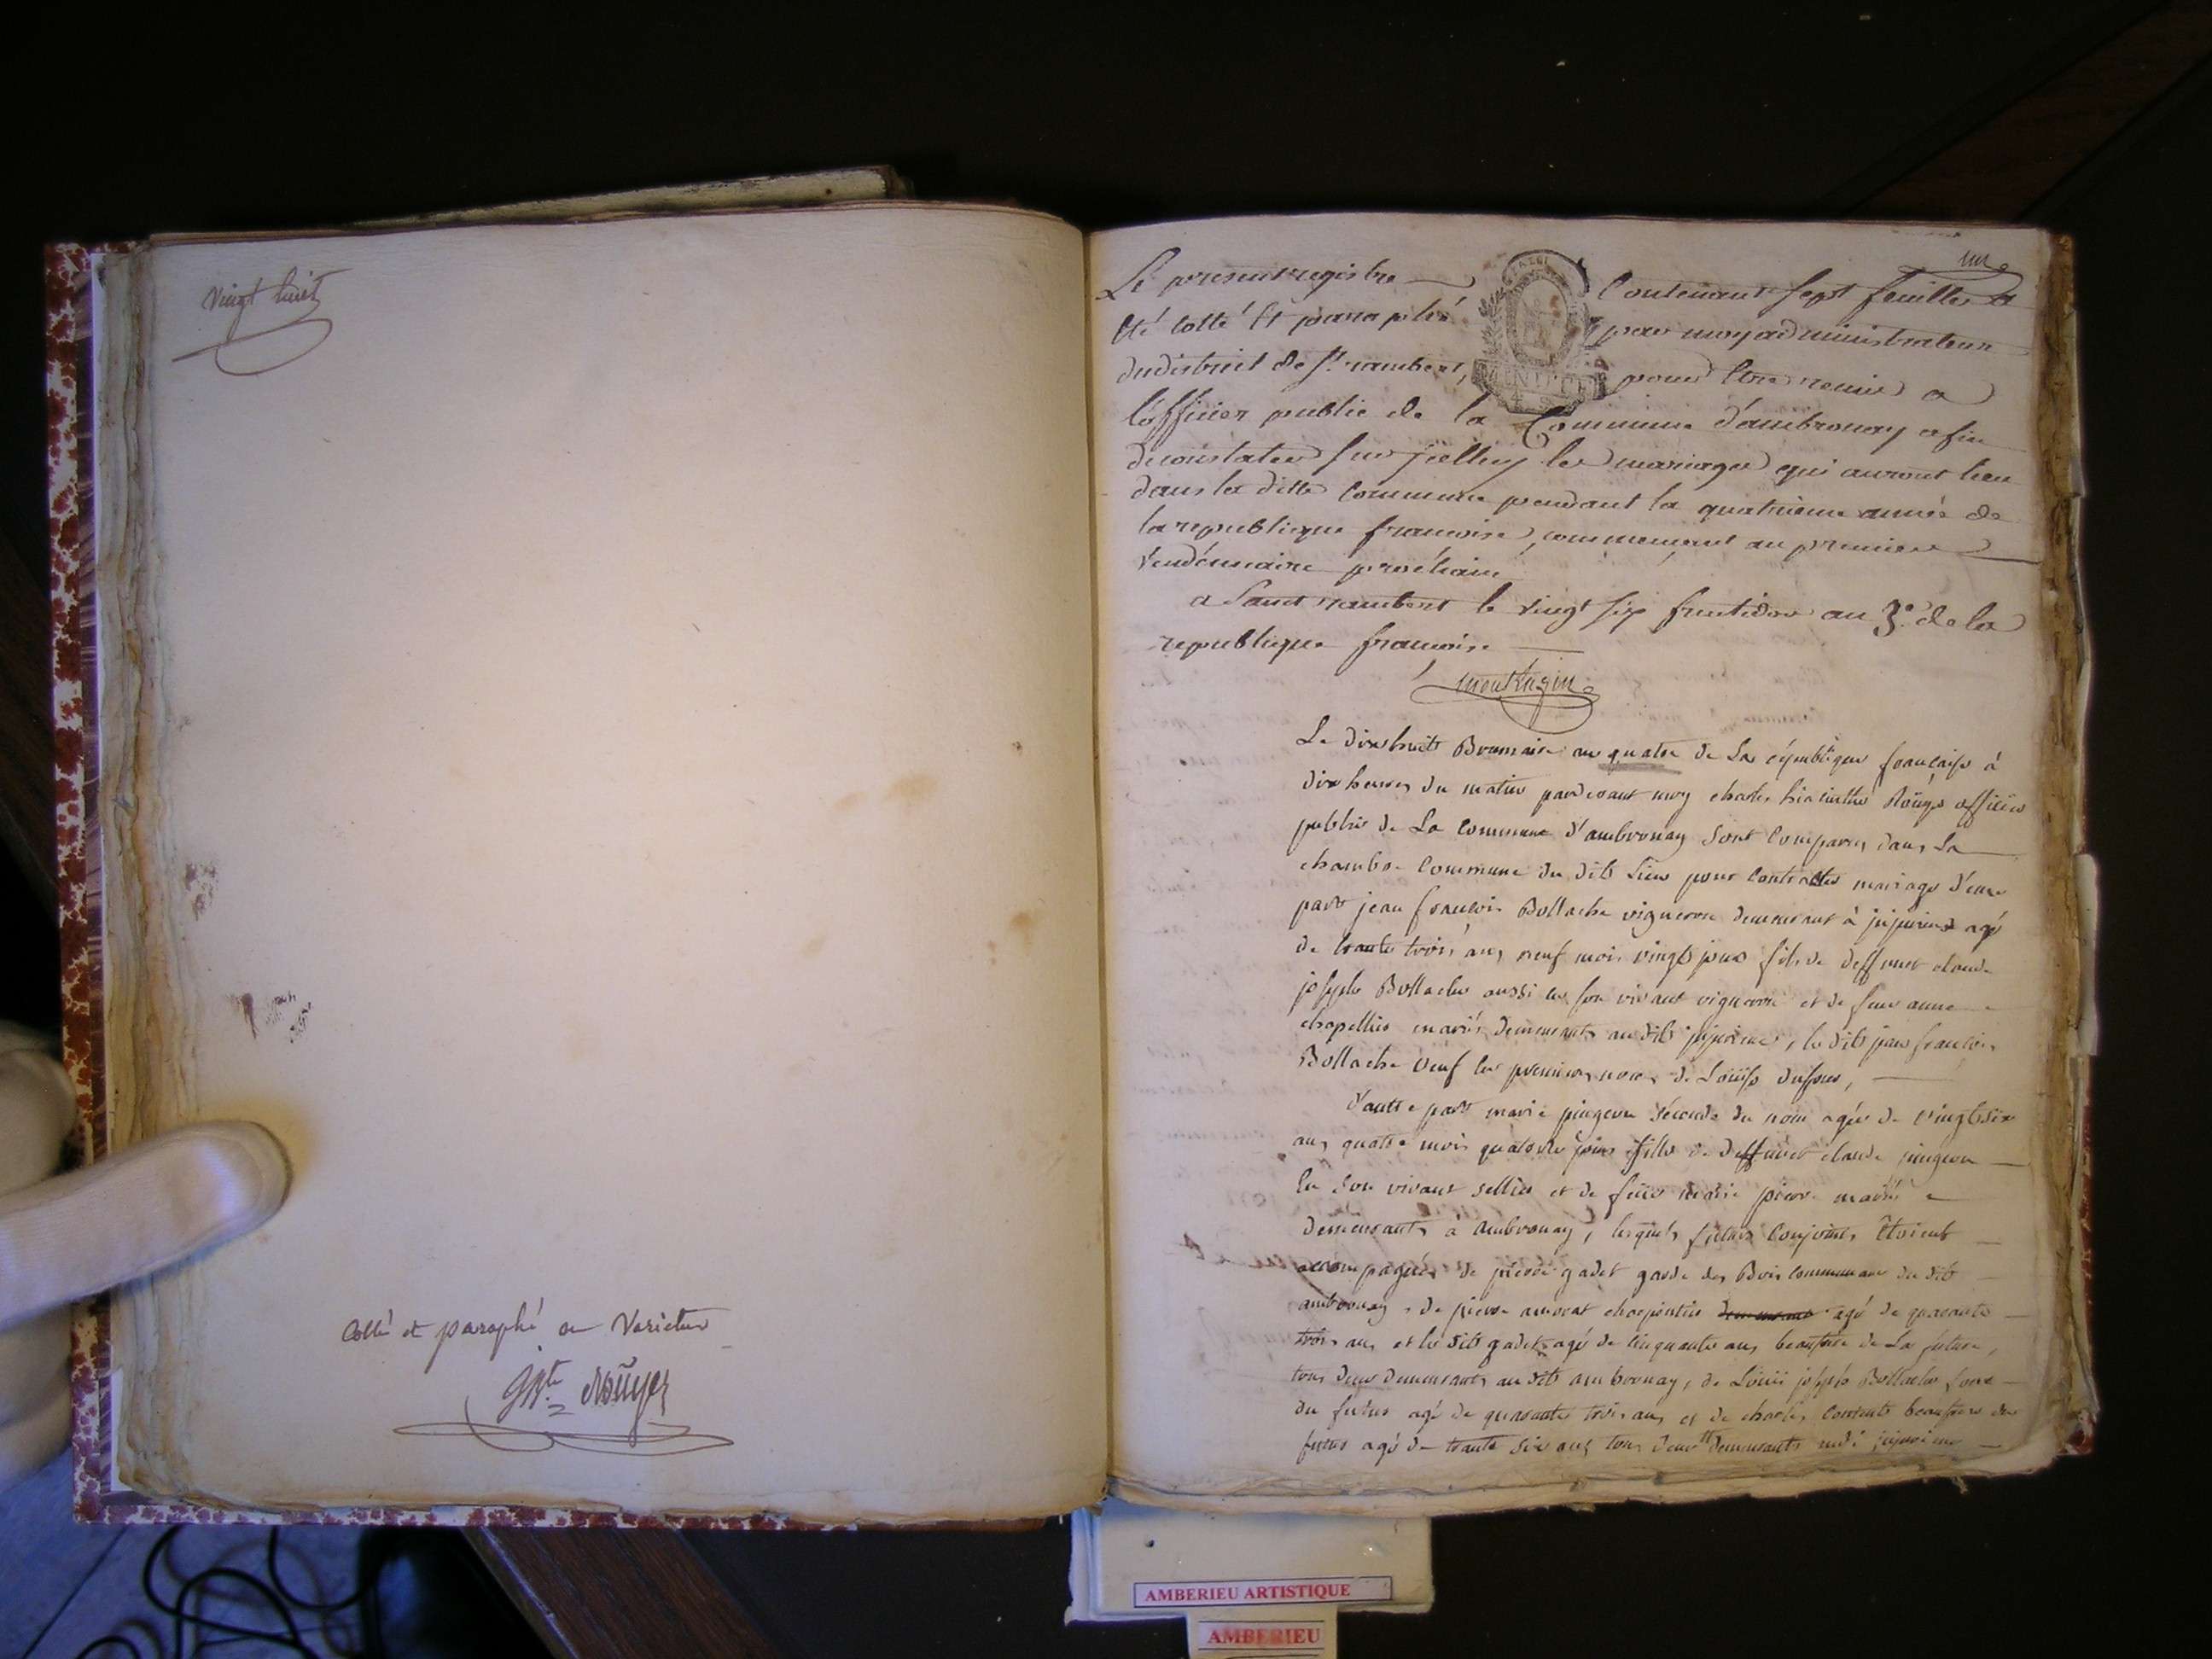 Vingt huit
Cotté et paraphé ne Varietur
une
Le present registre contenant sept feuilles a
été cotté Et paraphé par moy administrateur
du district de St. rambert, pour être remis a
l'officier public de la Commune d'ambronay afin
de constater sur jcelluy les mariages qui auront lieu
dans la ditte Commune pendant la quatrieme année de
la republique francoise, commencant au premier
Vendémiaire prochain
a Saint rambert le vingt six fructidor an 3e. de la
republique francoise
Le dix huit Brumaire an quatre de La république française à
dix heures du matin pardevant moy charles hiacinthe officier
public de La Commune d'ambronay sont Comparus dans La
chambre Commune du dit Lieu pour Contracter mariage d'une
part jean francois Bollache vigneron demeurant à jujurieux agé
de trante trois ans neuf mois vingt jour fils de deffunt claude
joseph Bollache aussi en son vivant vigneron et de feue anne
chapellier mariés demeurants au dit jujurieux, le dit jean francois
Bollache veuf en premieres noces de Loüise dufour,
d'autre part marie pingeon séconde du nom agée de vingt six
ans quatre mois quatorze jours fille de deffunt claude pingeon
En son vivant sellier et de feüe marie mariés
demeurants à ambronay, lesquels futurs Conjoints Étoient
accompagnés de pierre gadet garde des Bois Communaux du dit
ambronay, de pierre charpentier demeurant agé de quarante
trois ans et le dit gadet agé de Cinquante ans beaufrère de La future,
tous deux demeurants au dit ambronay, de Loüis joseph Bollache frere
du futur agé de quarante trois ans et de charles beaufrere du
futur agé de trante six ans tous deux demeurants jujurieux
AMBERIEU ARTISTIQUE
AMBERIEU